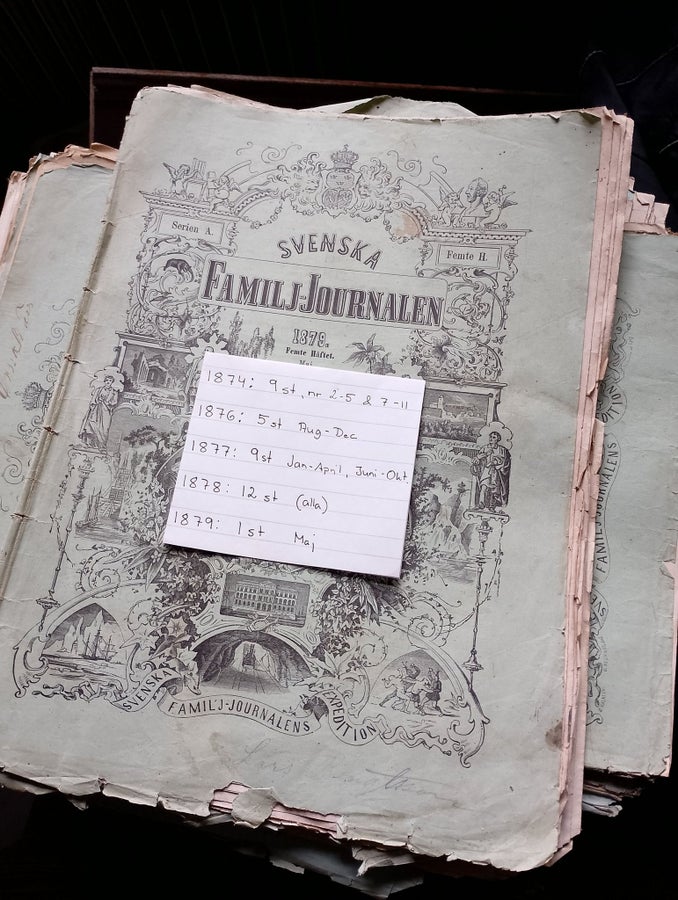 Serien A.
Femte H.
SVENSKA
FAMILJ-JOURNALEN
1879.
Femte Häftet.
Maj
1874: 9 st, nr 2-5 & 7-11
1876: 5 st Aug-Dec
1877: 9 st Jan-April, Juni-Okt.
1878: 12 st (alla)
1879: 1 st Maj
SVENSKA FAMILJ-JOURNALENS EXPEDITION
FAMILJ-JOURNALENS